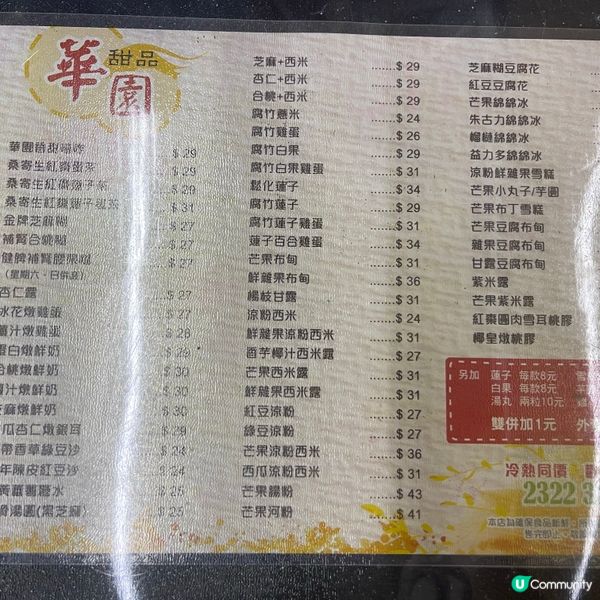 華園
甜品
華園
$ 29
桑寄生紅棗蛋茶 $ 29
桑寄生紅棗蓮子茶 $ 29
$ 31
金牌芝麻糊 $ 27
補腎合桃糊 $ 27
健脾補腎腰果糊 $ 27
(星期六、日供應)
杏仁露 $ 27
冰花燉雞蛋 $ 27
薑汁燉雞蛋 $ 28
蛋白燉鮮奶 $ 29
合桃燉鮮奶 $ 30
薑汁燉鮮奶 $ 30
芝麻燉鮮奶 $ 30
瓜杏仁燉銀耳 $ 27
帶香草綠豆沙 $ 25
年陳皮紅豆沙 $ 25
黃薑番薯糖水 $ 25
湯圓(黑芝麻) $ 25
芝麻+西米 ......$ 29
杏仁+西米 ......$ 29
合桃+西米 ......$ 29
腐竹薏米 ......$ 24
腐竹雞蛋 ......$ 26
腐竹白果 ......$ 29
腐竹白果雞蛋 ......$ 31
鬆化蓮子 ......$ 34
腐竹蓮子 ......$ 29
腐竹蓮子雞蛋 ......$ 31
蓮子百合雞蛋 ......$ 34
芒果布甸 ......$ 31
鮮雜果布甸 ......$ 36
楊枝甘露 ......$ 31
涼粉西米 ......$ 24
鮮雜果涼粉西米 ......$ 31
香芋椰汁西米露 ......$ 27
芒果西米露 ......$ 31
鮮雜果西米露 ......$ 31
紅豆涼粉 ......$ 27
綠豆涼粉 ......$ 27
芒果涼粉西米 ......$ 36
西瓜涼粉西米 ......$ 31
芒果腸粉 ......$ 43
芒果河粉 ......$ 41
芝麻糊豆腐花
紅豆豆腐花
芒果綿綿冰
朱古力綿綿冰
榴槤綿綿冰
益力多綿綿冰
涼粉鮮雜果雪糕
芒果小丸子/芋圓
芒果布丁雪糕
芒果豆腐布甸
雜果豆腐布甸
甘露豆腐布甸
紫米露
芒果紫米露
紅棗圓肉雪耳桃膠
椰皇燉桃膠
另加 蓮子 每款8元
白果 每款8元
湯丸 兩粒10元
雙併加1元 外
冷熱同價 歡
2322 3
本店為確保食品新鮮
售完即止
U Community